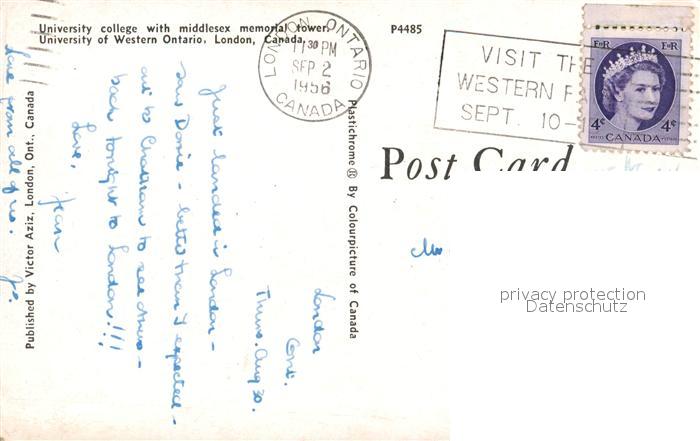 University college with middlesex memorial tower.
University of Western Ontario, London, Canada.
P4485
LONDON ONTARIO
11 30 PM
SEP 2
1956
CANADA
VISIT THE
WESTERN F
SEPT. 10-
E II R E II R
4¢ 4¢
CANADA
Post Card
Plastichrome ® By Colourpicture of Canada
Published by Victor Aziz, London, Ont., Canada
London
Ont.
Thurs. Aug 30.
Just landed in London -
saw Dorie - better than I expected -
out to Chatham to see
back tonight to London!!!
Love,
Jean
Love from all of us.
Mrs
privacy protection
Datenschutz